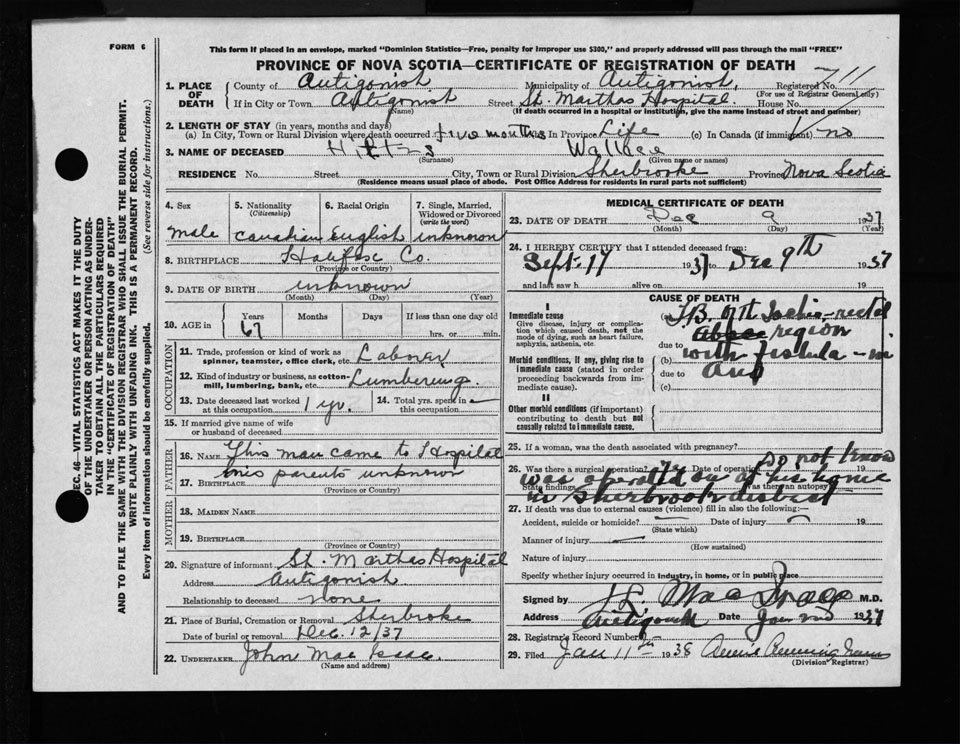 FORM 6
This form if placed in an envelope, marked "Dominion Statistics—Free, penalty for improper use $300," and properly addressed will pass through the mail "FREE"
PROVINCE OF NOVA SCOTIA—CERTIFICATE OF REGISTRATION OF DEATH
1. PLACE OF DEATH
County of Antigonish Municipality of Antigonish, Registered No.
(For use of Registrar General only)
If in City or Town Antigonish Street St. Marthas Hospital. House No.
(Name) (If death occurred in a hospital or institution, give the name instead of street and number)
2. LENGTH OF STAY (in years, months and days)
(a) In City, Town or Rural Division where death occurred five months In Province Life (c) In Canada (if immigrant)
3. NAME OF DECEASED Hiltns Wallace
(Surname) (Given name or names)
RESIDENCE No. Street City, Town or Rural Division Sherbrooke Province Nova Scotia
(Residence means usual place of abode. Post Office Address for residents in rural parts not sufficient)
4. Sex
male
5. Nationality (Citizenship)
Canadian
6. Racial Origin
English
7. Single, Married, Widowed or Divorced (write the word)
unknown
8. BIRTHPLACE Halifax Co.
(Province or Country)
9. DATE OF BIRTH unknown
(Month) (Day) (Year)
10. AGE in Years Months Days If less than one day
67 hrs. or min.
OCCUPATION
11. Trade, profession or kind of work as spinner, teamster, office clerk, etc. Laborer
12. Kind of industry or business, as cotton-mill, lumbering, bank, etc. Lumbering.
13. Date deceased last worked at this occupation 1 yr. 14. Total yrs. spent in this occupation
15. If married give name of wife or husband of deceased
FATHER
16. NAME This man came to Hospital
his parents unknown
17. BIRTHPLACE
(Province or Country)
MOTHER
18. MAIDEN NAME
19. BIRTHPLACE
(Province or Country)
20. Signature of informant St. Marthas Hospital
Address Antigonish
Relationship to deceased none
21. Place of Burial, Cremation or Removal Sherbroke
Date of burial or removal Dec. 12/37
22. UNDERTAKER John Mac Isaac.
(Name and address)
MEDICAL CERTIFICATE OF DEATH
23. DATE OF DEATH Dec 9 1937
(Month) (Day) (Year)
24. I HEREBY CERTIFY that I attended deceased from:
Sept. 17 1937 to Dec 9th 1937
and last saw h alive on 19
CAUSE OF DEATH
I
Immediate cause
Give disease, injury or complication which caused death, not the mode of dying, such as heart failure, asphyxia, asthenia, etc.
(a) T.B. of the Ischio-rectal
region
due to
Morbid conditions, if any, giving rise to immediate cause (stated in order proceeding backwards from immediate cause).
(b) with fistula-in
due to
(c)
II
Other morbid conditions (if important) contributing to death but not causally related to immediate cause.
25. If a woman, was the death associated with pregnancy?
26. Was there a surgical operation? Date of operation Do not know
State findings Was there an autopsy
was operated on at his home
in Sherbrooke district
27. If death was due to external causes (violence) fill in also the following:—
Accident, suicide or homicide? Date of injury 19
(State which)
Manner of injury
(How sustained)
Nature of injury
Specify whether injury occurred in industry, in home, or in public place
Signed by M.D.
Address Antigonish Date 1937
28. Registrar's Record Number
29. Filed Jan 11th 1938
(Division Registrar)
DEC. 46—VITAL STATISTICS ACT MAKES IT THE DUTY
OF THE UNDERTAKER OR PERSON ACTING AS UNDER-
TAKER TO OBTAIN ALL THE PARTICULARS REQUIRED
IN THE "CERTIFICATE OF REGISTRATION OF DEATH"
AND TO FILE THE SAME WITH THE DIVISION REGISTRAR WHO SHALL ISSUE THE BURIAL PERMIT.
WRITE PLAINLY WITH UNFADING INK. THIS IS A PERMANENT RECORD.
Every item of information should be carefully supplied. (See reverse side for instructions.)